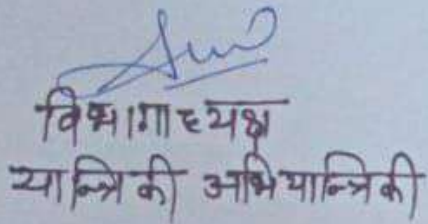 विभागाध्यक्ष
यान्त्रिकी अभियान्त्रिकी